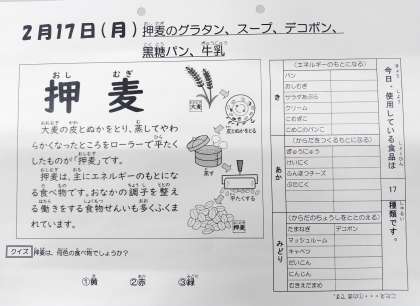 2月17日(月)押麦のグラタン、スープ、デコポン、
黒糖パン、牛乳
押麦
おし むぎ
大麦の皮とぬかをとり、蒸してやわ
らかくなったところをローラーで平たく
したものが「押麦」です。
押麦は、主にエネルギーのもとにな
る食べ物です。おなかの調子を整え
る働きをする食物せんいも多くふくま
れています。
大麦
皮とぬかをとる
蒸す
平たくする
押麦
クイズ 押麦は、何色の食べ物でしょうか?
①黄 ②赤 ③緑
今日、使用している食品は
17
種類です。
き
(エネルギーのもとになる)
パン
おしむぎ
サラダあぶら
クリーム
こむぎこ
こめこのパンこ
あか
(からだをつくるもとになる)
ぎゅうにゅう
けいにく
ふんにゅうチーズ
ぶたにく
みどり
(からだのちょうしをととのえる)
たまねぎ デコポン
マッシュルーム
キャベツ
だいこん
にんじん
むきえだまめ